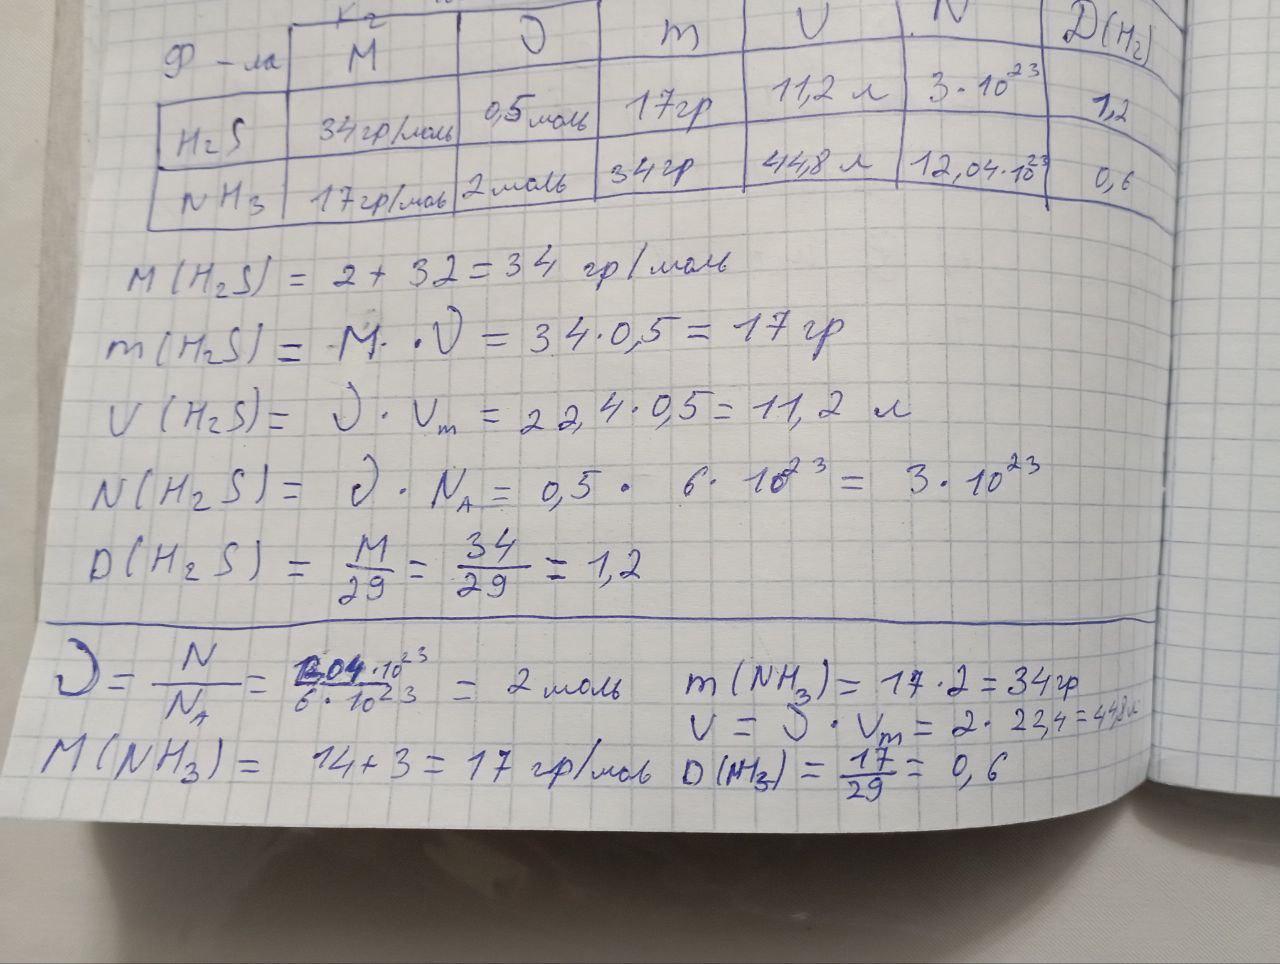 Ф-ла M ν m V N D(H₂)
H₂S 34гр/моль 0,5моль 17гр 11,2 л 3·10²³ 1,2
NH₃ 17гр/моль 2моль 34гр 44,8 л 12,04·10²³ 0,6
M(H₂S) = 2 + 32 = 34 гр/моль
m(H₂S) = M · ν = 34·0,5 = 17гр
V(H₂S) = ν · Vm = 22,4·0,5 = 11,2 л
N(H₂S) = ν · N_A = 0,5 · 6·10²³ = 3·10²³
D(H₂S) = M/29 = 34/29 = 1,2
ν = N/N_A = 12,04·10²³/6·10²³ = 2 моль m(NH₃) = 17·2 = 34гр
V = ν · Vm = 2· 22,4 = 44,8л
M(NH₃) = 14+3 = 17 гр/моль D(NH₃) = 17/29 = 0,6